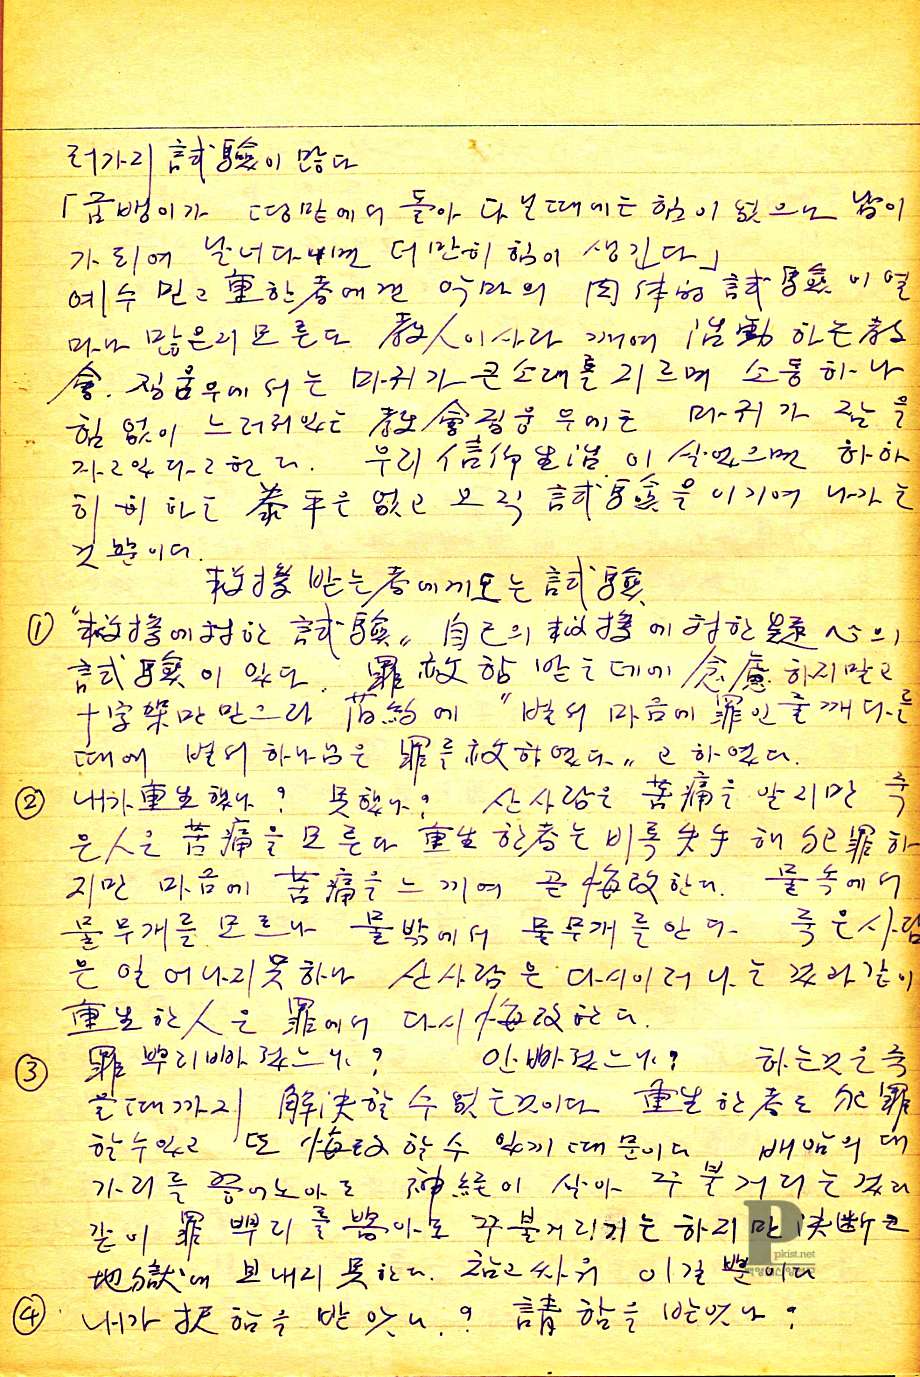 러가리 試驗이 많다
「굼벵이가 땅 밑에서 돌아 다닐 때에는 힘이 없으나 남이
가 되여 날너 다니면 더 만히 힘이 생긴다」
예수 믿고 重한 者에겐 악마의 肉体的 試驗이 얼
마나 많은지 모른다 敎人이 사라 깨여 活動하는 敎
會. 직움우에서는 마귀가 큰 소래를 지르며 소동하나
힘 없이 느러저있는 敎會 직웅우에는 마귀가 잠을
자고 있다고 한다. 우리 信仰生活이 살았으면 하하
히히 하는 泰平은 없고 오직 試驗을 이기여 나가는
것 뿐이다.
救援 받는 者에게 오는 試驗
① "救援에 対한 試驗" 自己의 救援에 対한 疑心의
試驗이 있다. 罪 赦함 받는데에 念慮하지말고
十字架만 믿으라 旧約에 "벌서 마음에 罪인줄 깨다를
때에 벌서 하나님은 罪를 赦하였다" 고 하였다.
② 내가 重生했나? 못했나? 산사람은 苦痛을 알지만 죽
은 人은 苦痛을 모른다 重生한 者는 비록 失手해 犯罪하
지만 마음에 苦痛을 느끼여 곧 悔改한다. 물속에서
물무개를 모르나 물밖에서 물무개를 안다. 죽은 사람
은 일어나지 못하나 산사람은 다시 이러나는 것과 같이
重生한 人은 罪에서 다시 悔改한다.
③ 罪 뿌리 빠졌느냐? 안빠졌느냐? 하는 것은 죽
을 때까지 解決할 수 없는 것이다 重生한 者는 犯罪
할 수 있고 또 悔改할 수 있기 때문이다 배암의 대
가리를 끊어노아도 神経이 살아 꾸불거리는 것과
같이 罪 뿌리를 뽑아도 꾸불거리기는 하지만 決断코
地獄에 보내지 못한다. 참고 싸워 이길 뿐이다
④ 내가 択함을 받았나? 請함을 받았나?
pkist.net